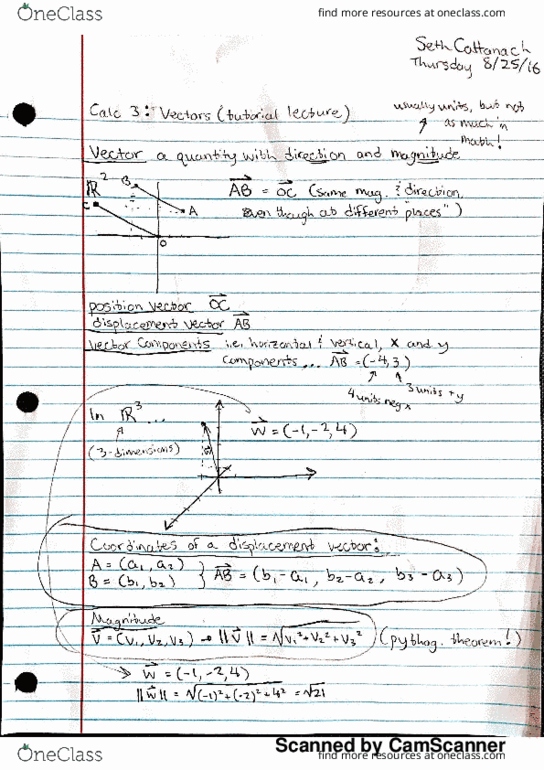 OneClass
find more resources at oneclass.com
Seth Cottanach
Thursday 8/25/16
Calc 3: Vectors (tutorial lecture)
usually units, but not
as much in
math!
Vector a quantity with direction and magnitude
ℝ²
B
C
A
O
AB = OC (same mag. & direction,
even though at different "places")
position vector OC
displacement vector AB
vector components i.e. horizontal & vertical, x and y
components... AB = (-4,3)
4 units neg x
3 units +y
In ℝ³ ...
(3-dimensions)
w = (-1,-2,4)
Coordinates of a displacement vector:
A = (a₁, a₂)
B = (b₁, b₂) } AB = (b₁-a₁, b₂-a₂, b₃-a₃)
Magnitude
v = (v₁, v₂, v₃) → ||v|| = √v₁²+v₂²+v₃² (pythag. theorem!)
w = (-1,-2,4)
||w|| = √(-1)²+(-2)²+4² = √21
Scanned by CamScanner
OneClass
find more resources at oneclass.com